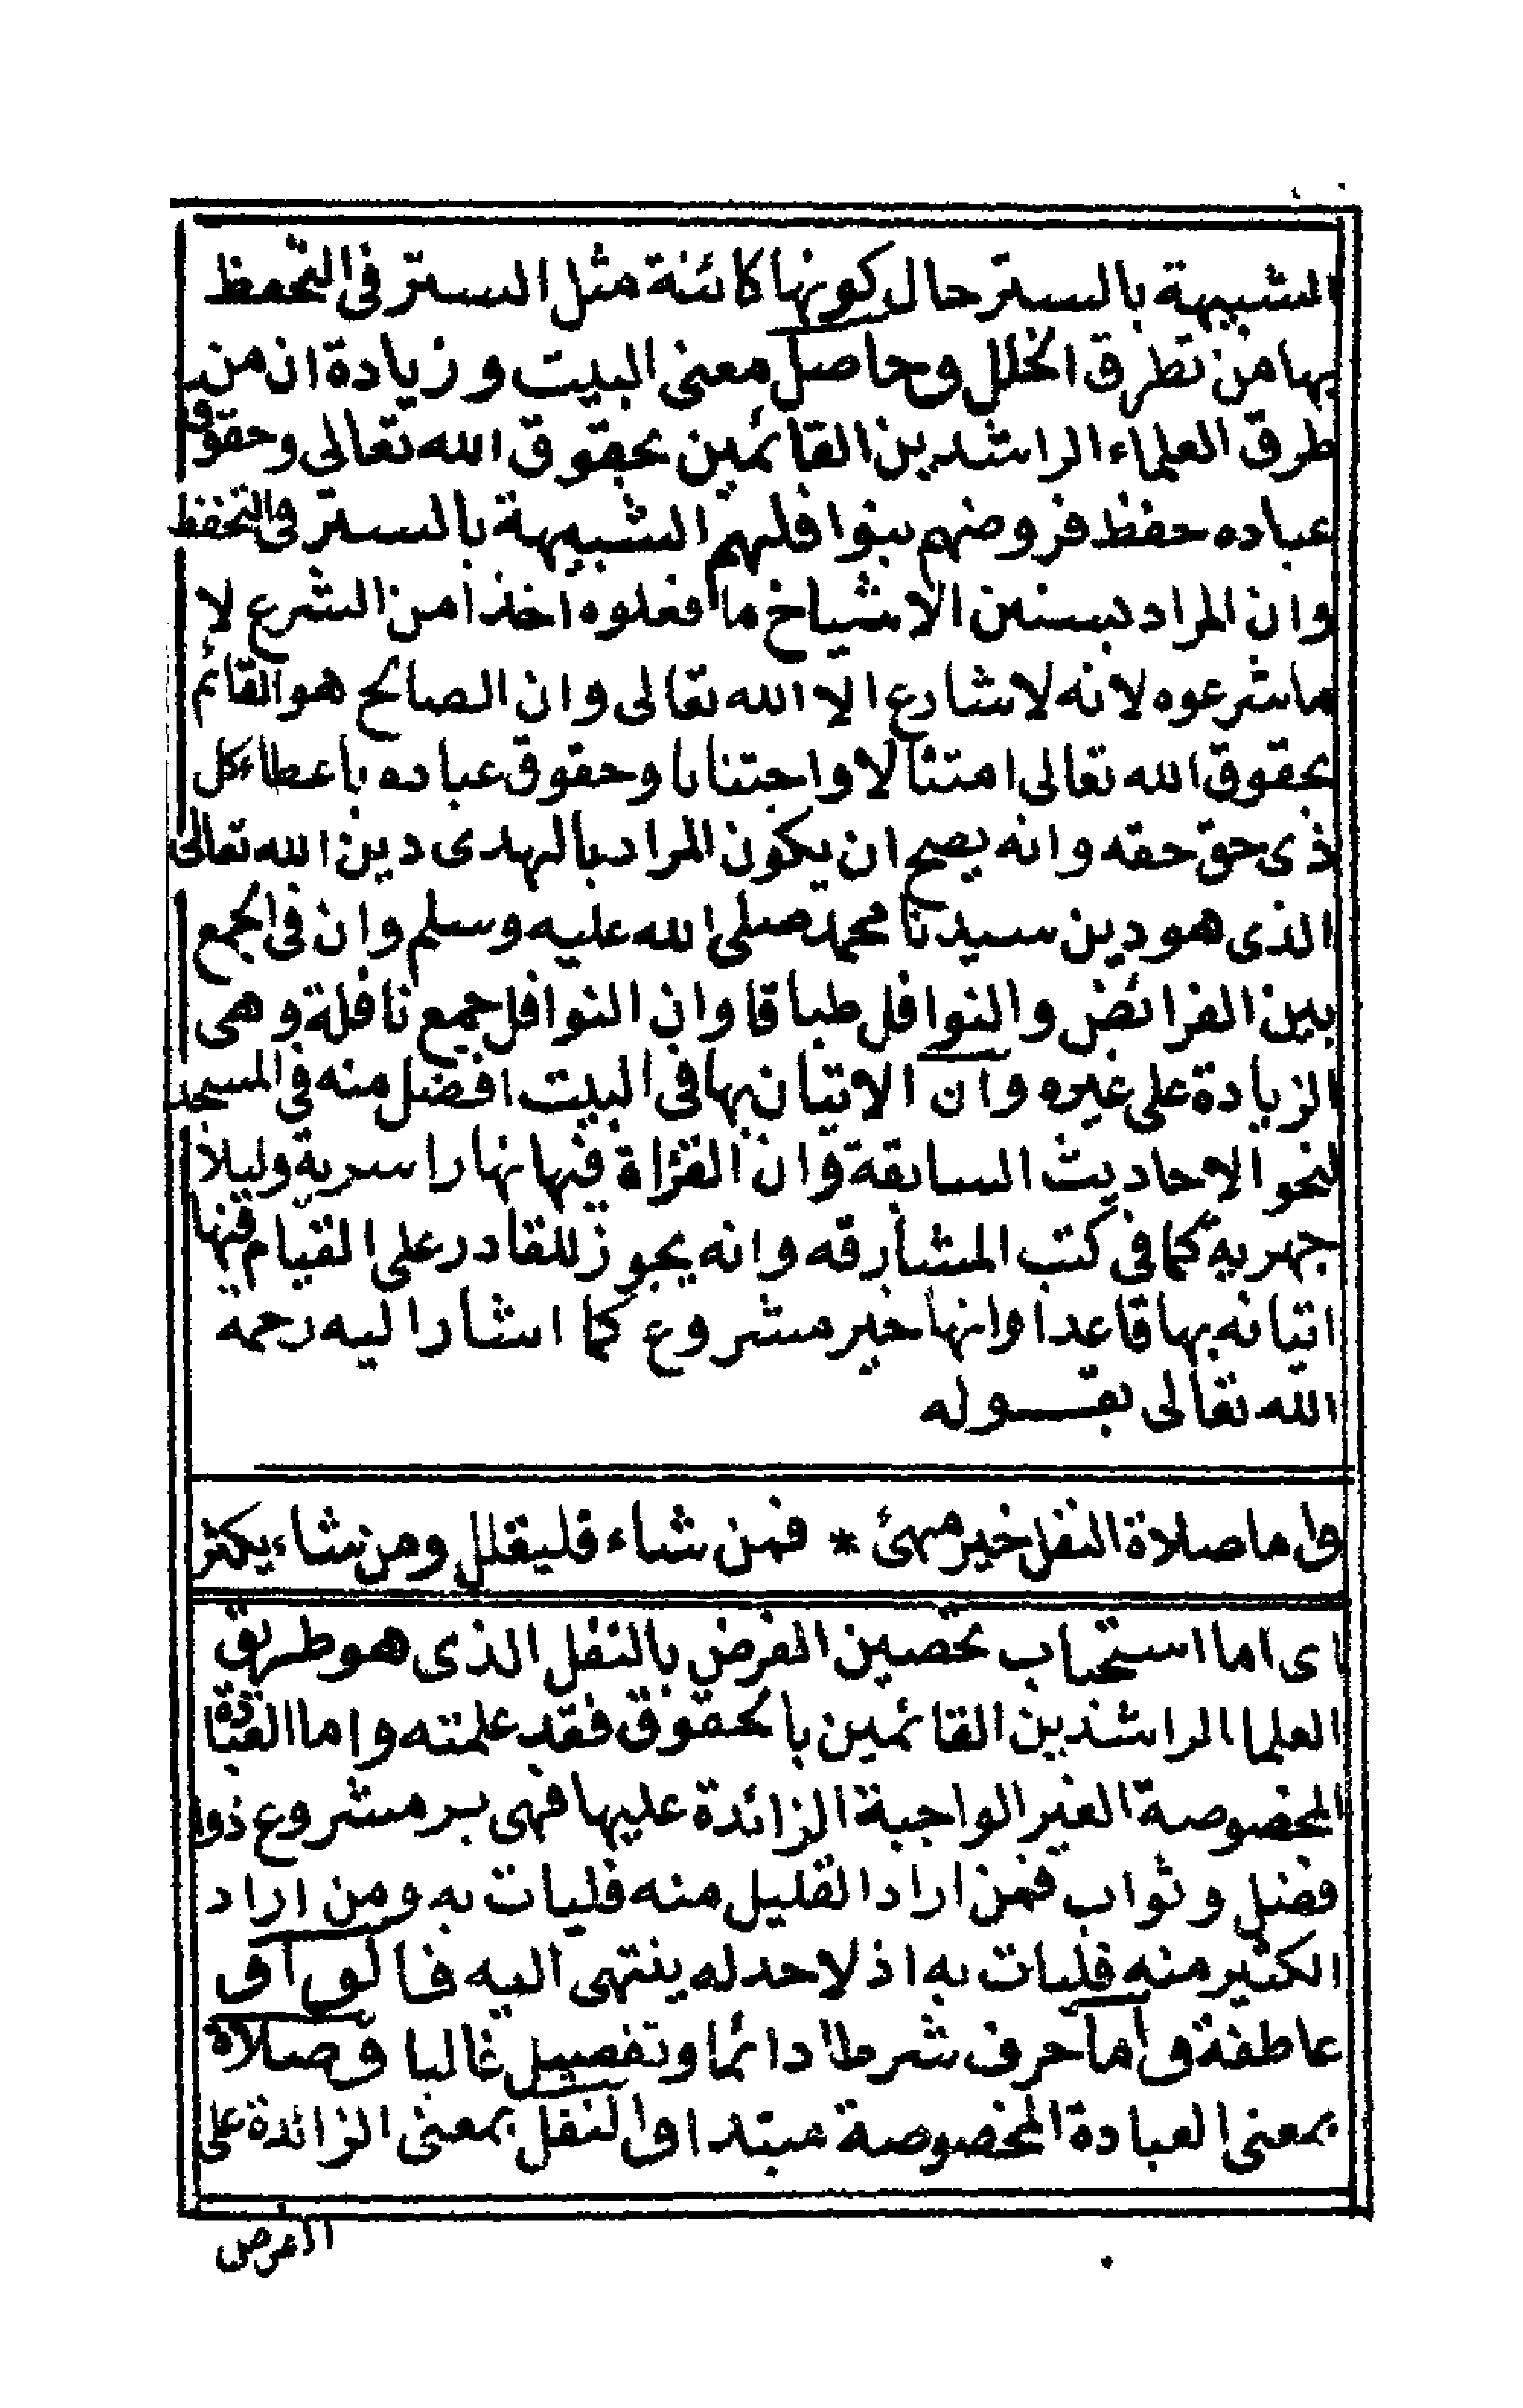 الشبيهة بالستر حال كونها كائنة مثل الستر فى التحفظ
بها من تطرق الخلل وحاصل معنى البيت وزيادة ان من
طرق العلماء الراشدين القائمين بحقوق الله تعالى وحقوق
عباده حفظ فروضهم بنوافلهم الشبيهة بالستر فى التحفظ
وان المراد بسنن الاشياخ ما فعلوه اخذا من الشرع لا
ما شرعوه لانه لا شارع الا الله تعالى وان الصالح هو القائم
بحقوق الله تعالى امتثالا واجتنابا وحقوق عباده باعطاء كل
ذى حق حقه وانه يصح ان يكون المراد بالهدى دين الله تعالى
الذى هو دين سيدنا محمد صلى الله عليه وسلم وان فى الجمع
بين الفرائض والنوافل طباقا وان النوافل جمع نافلة وهى
الزيادة على غيره وان الاتيان بها فى البيت افضل منه فى المسجد
لنحو الاحاديث السابقة وان القراة فيها نهارا سرية وليلا
جهرية كما فى كتب المشارقه وانه يجوز للقادر على القيام فيها
اتيانه بها قاعدا وانها خير مشروع كما اشار اليه رحمه
الله تعالى بقوله
واما صلاة النفل خير مهئ * فمن شاء فليقلل ومن شاء يكثر
اى اما استحباب تحصين الفرض بالنفل الذى هو طريق
العلما الراشدين القائمين بالحقوق فقد علمته واما العبادة
المخصوصة الغير الواجبة الزائدة عليها فهى بر مشروع ذوا
فضل وثواب فمن اراد القليل منه فليات به ومن اراد
الكثير منه فليات به اذ لا حد له ينتهى اليه فالواو
عاطفة واما حرف شرط دائما وتفصيل غالبا وصلاة
بمعنى العبادة المخصوصة مبتدا والنفل بمعنى الزائدة على
الفرض